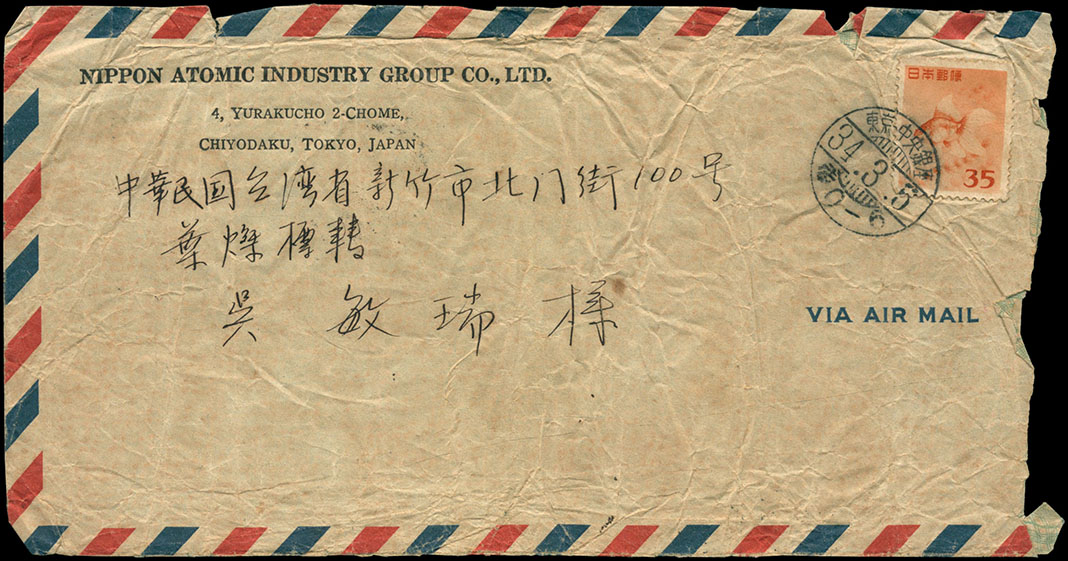 NIPPON ATOMIC INDUSTRY GROUP CO., LTD.
4, YURAKUCHO 2-CHOME,
CHIYODAKU, TOKYO, JAPAN
日本郵便
35
東京中央
34.3.5
中華民国台湾省新竹市北门街100号
葉燦標轉
吳敏瑞樣
VIA AIR MAIL